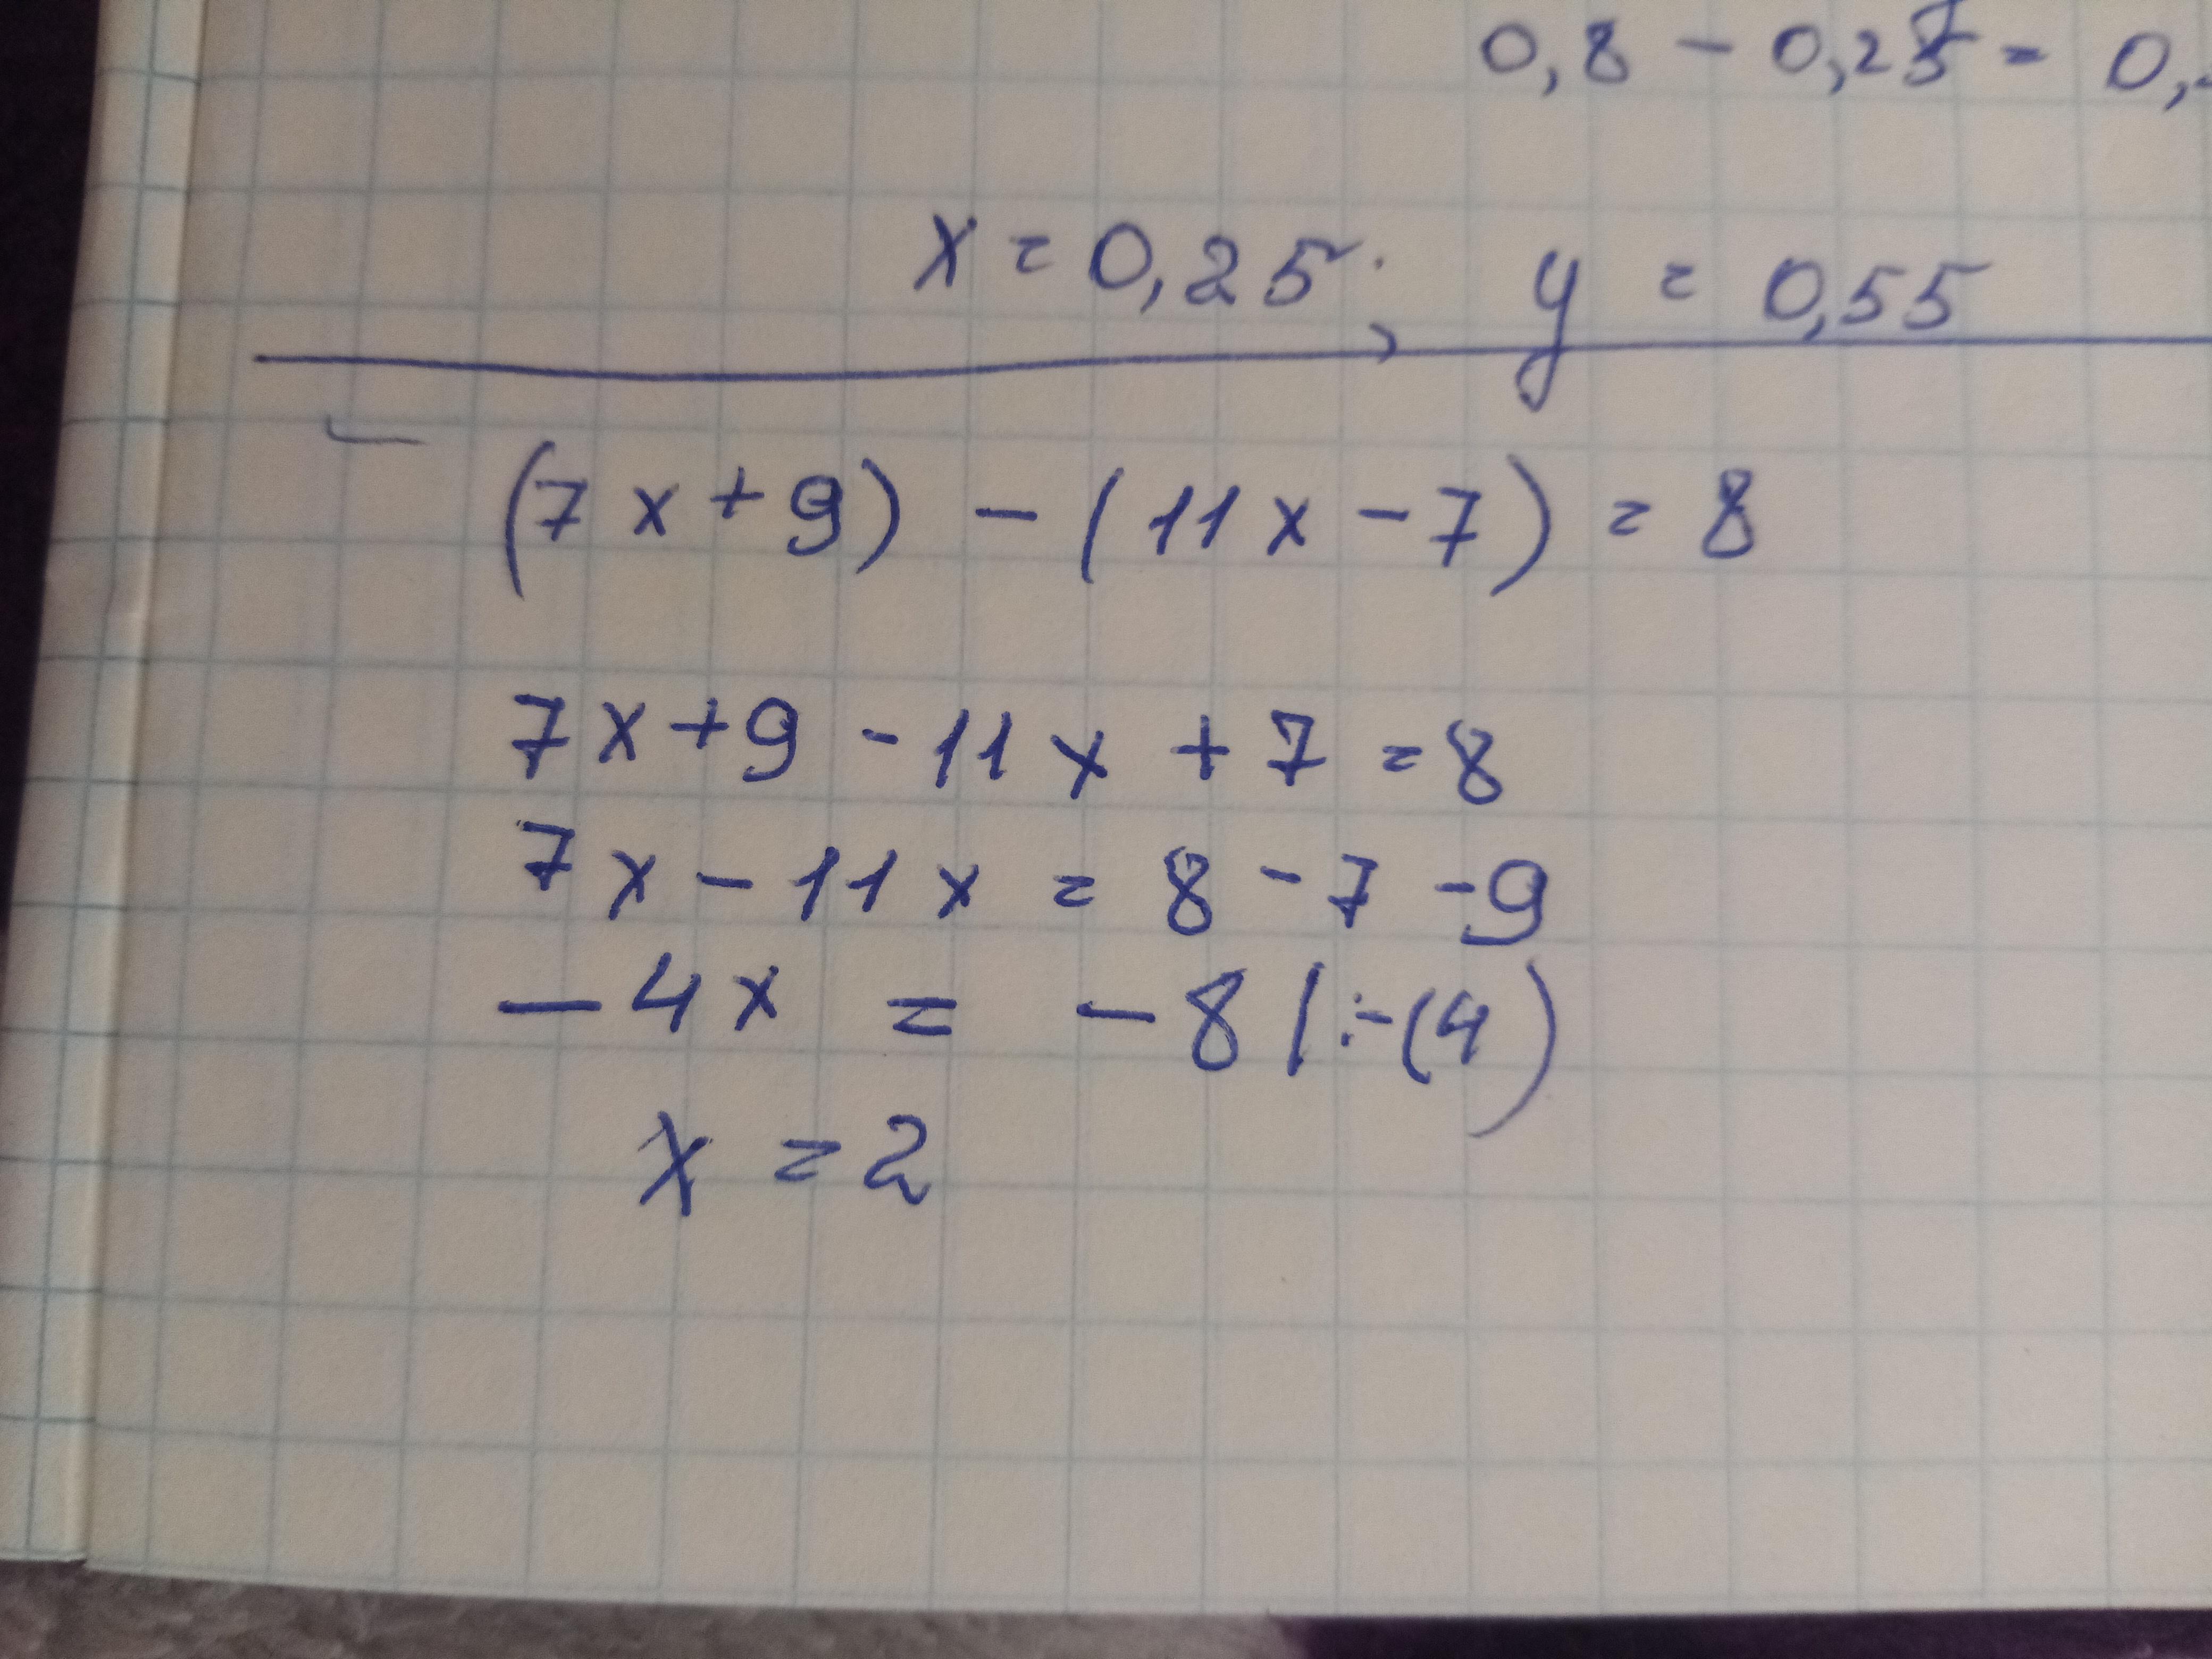 0,8 - 0,25 = 0,
x = 0,25; y = 0,55
(7x+9) - (11x-7) = 8
7x+9 -11x +7 =8
7x - 11x = 8 -7 -9
-4x = -8 | ÷-(4)
x = 2